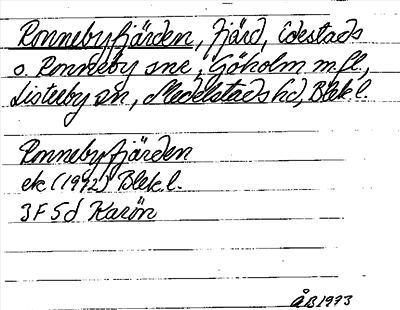 Ronnebyfjärden, fjärd, Edestads
o. Ronneby snr, Göholm m.fl.,
Listerby sn, Medelstads hd, Blek l.
Ronnebyfjärden
ek (1992) Blek l.
3F 5d Karön
ÅB 1993